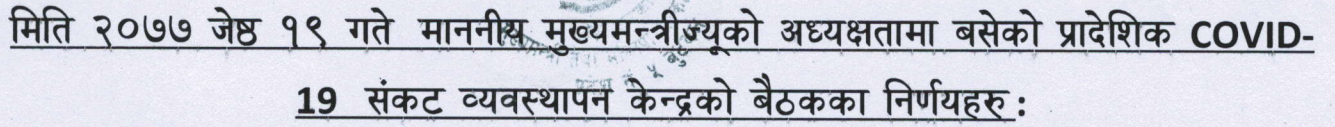 मिति २०७७ जेष्ठ १९ गते माननीय मुख्यमन्त्रीज्यूको अध्यक्षतामा बसेको प्रादेशिक COVID-
19 संकट व्यवस्थापन केन्द्रको बैठकका निर्णयहरु :